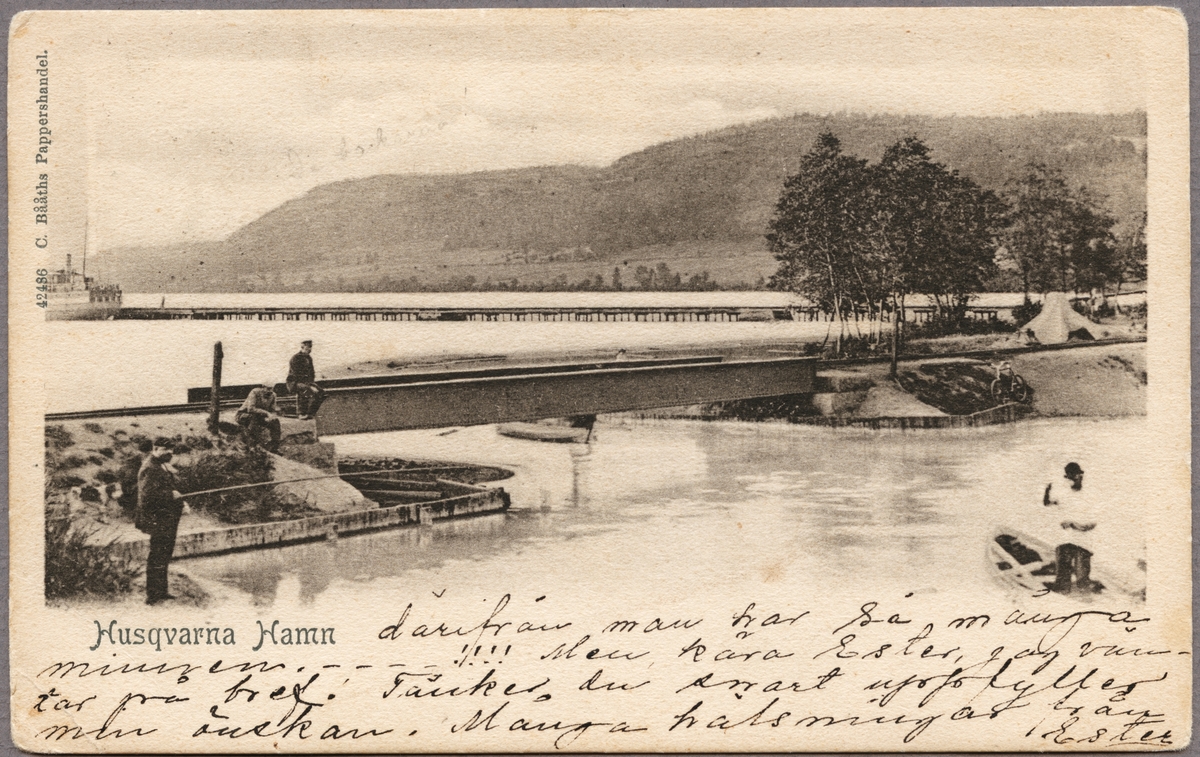 42486 C. Bååths Pappershandel.
Husqvarna Hamn
därifrån man har så många
minnen. - - - - !!!! Men, kära Ester, jag vän-
tar på bref! Tänker du snart uppfyller
min önskan. Många hälsningar från
Ester